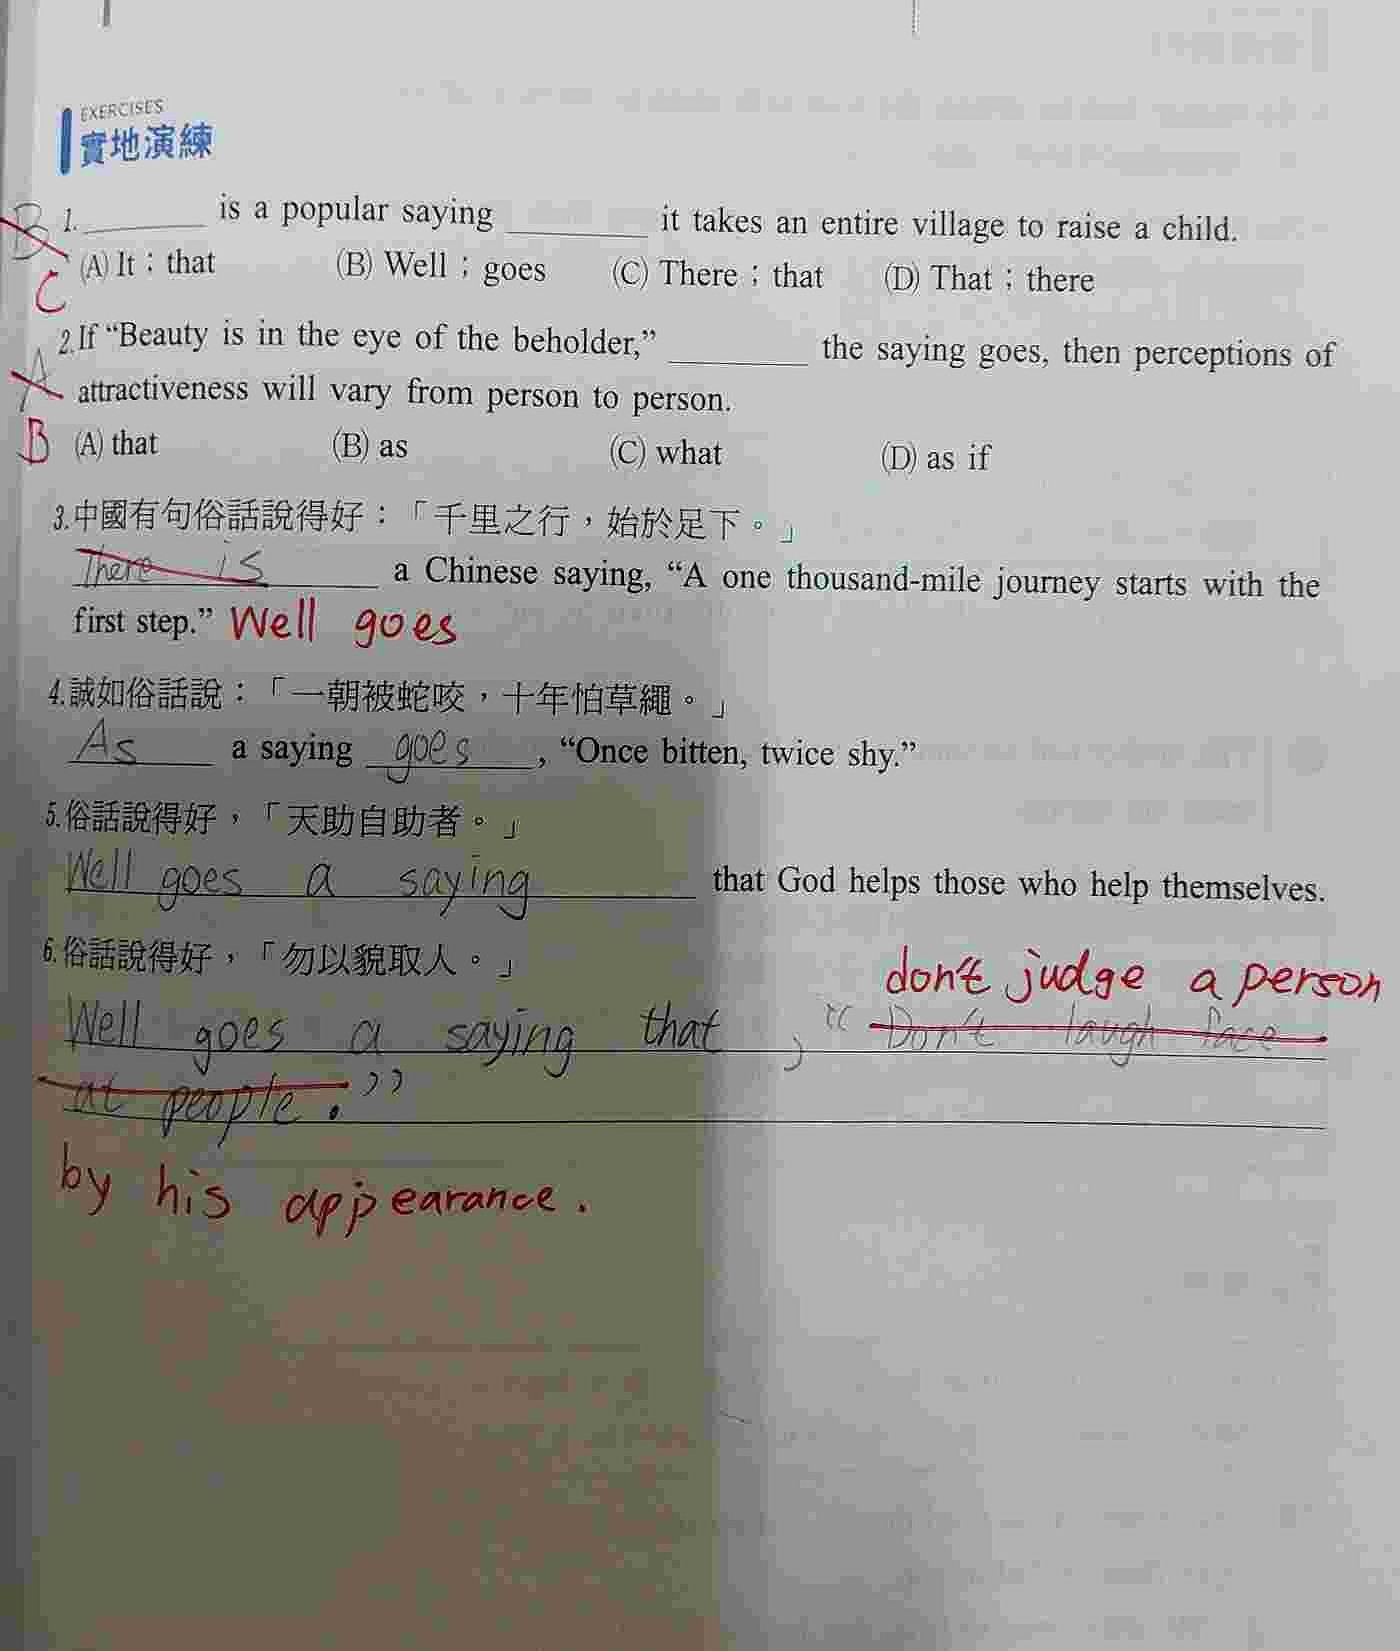 EXERCISES
實地演練
B 1.________ is a popular saying ________ it takes an entire village to raise a child.
C (A) It；that (B) Well；goes (C) There；that (D) That；there
2.If “Beauty is in the eye of the beholder,” ________ the saying goes, then perceptions of
A attractiveness will vary from person to person.
B (A) that (B) as (C) what (D) as if
3.中國有句俗話說得好：「千里之行，始於足下。」
There is a Chinese saying, “A one thousand-mile journey starts with the
first step.” Well goes
4.誠如俗話說：「一朝被蛇咬，十年怕草繩。」
As a saying goes, “Once bitten, twice shy.”
5.俗話說得好，「天助自助者。」
Well goes a saying that God helps those who help themselves.
6.俗話說得好，「勿以貌取人。」
don't judge a person
Well goes a saying that, “Don't laugh face
at people.”
by his appearance.